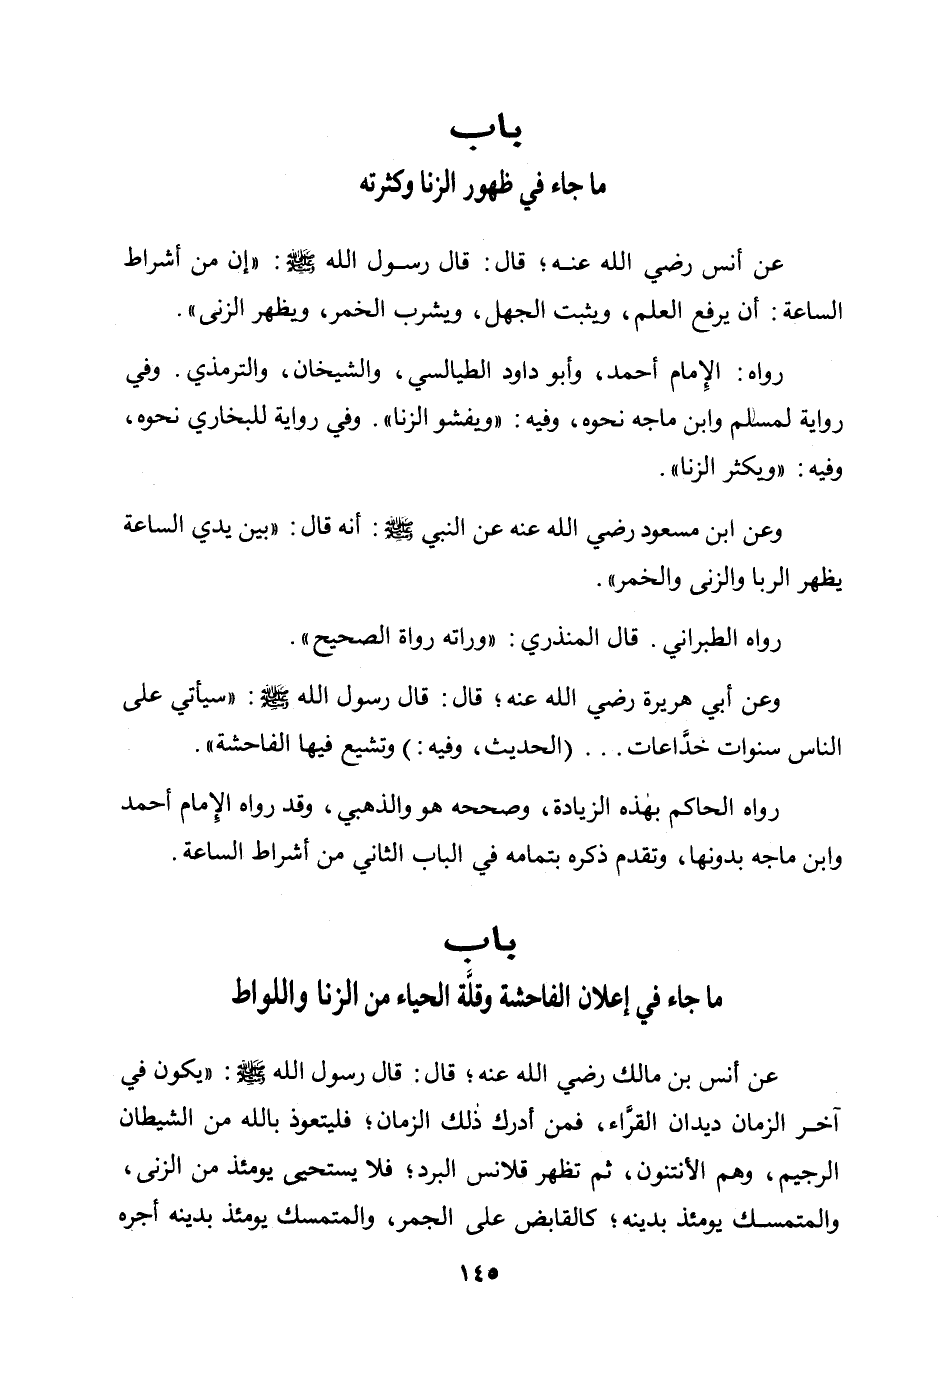 باب
ما جاء في ظهور الزنا وكثرته
عن أنس رضي الله عنه؛ قال: قال رسول الله ﷺ: «إن من أشراط
الساعة: أن يرفع العلم، ويثبت الجهل، ويشرب الخمر، ويظهر الزنى».
رواه: الإمام أحمد، وأبو داود الطيالسي، والشيخان، والترمذي. وفي
رواية لمسلم وابن ماجه نحوه، وفيه: «ويفشو الزنا». وفي رواية للبخاري نحوه،
وفيه: «ويكثر الزنا».
وعن ابن مسعود رضي الله عنه عن النبي ﷺ: أنه قال: «بين يدي الساعة
يظهر الربا والزنى والخمر».
رواه الطبراني. قال المنذري: «وراته رواة الصحيح».
وعن أبي هريرة رضي الله عنه؛ قال: قال رسول الله ﷺ: «سيأتي على
الناس سنوات خدَّاعات... (الحديث، وفيه:) وتشيع فيها الفاحشة».
رواه الحاكم بهٰذه الزيادة، وصححه هو والذهبي، وقد رواه الإمام أحمد
وابن ماجه بدونها، وتقدم ذكره بتمامه في الباب الثاني من أشراط الساعة.
باب
ما جاء في إعلان الفاحشة وقلَّة الحياء من الزنا واللواط
عن أنس بن مالك رضي الله عنه؛ قال: قال رسول الله ﷺ: «يكون في
آخر الزمان ديدان القرَّاء، فمن أدرك ذٰلك الزمان؛ فليتعوذ بالله من الشيطان
الرجيم، وهم الأنتنون، ثم تظهر قلانس البرد؛ فلا يستحيى يومئذ من الزنى،
والمتمسك يومئذ بدينه؛ كالقابض على الجمر، والمتمسك يومئذ بدينه أجره
١٤٥